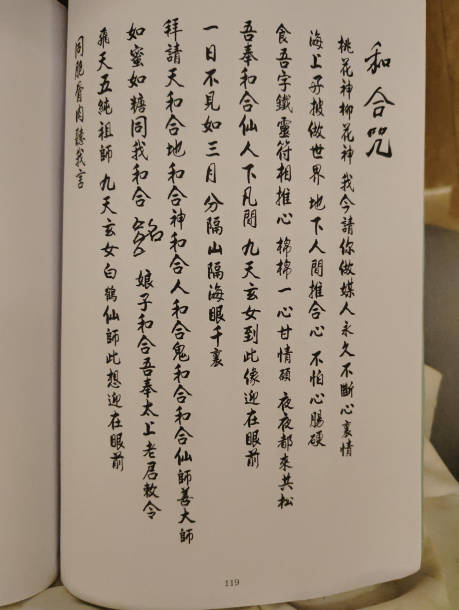 和合咒
桃花神柳花神 我今請你做媒人永久不斷心裏情
海上子披做世界 地下人間推合心 不怕心腸硬
食吾字鐵靈符相推心 棉棉一心甘情碩 夜夜都來共松
吾奉和合仙人下凡間 九天玄女到此像迎在眼前
一日不見如三月 分隔山隔海眼千裏
拜請天和合地和合神和合人和合鬼和合和合仙師善大師
如蜜如糖同我和合 名 娘子和合吾奉太上老君敕令
飛天五純祖師 九天玄女白鶴仙師此想迎在眼前
同胞骨肉聽我言
119